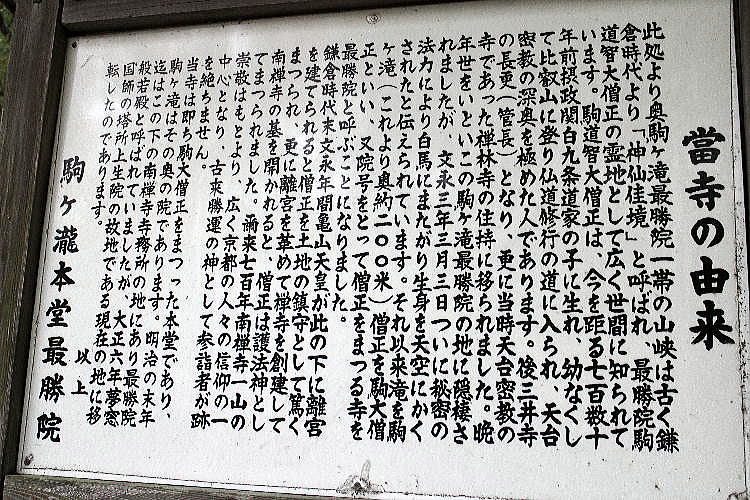 當寺の由来
此処より奥駒ヶ滝最勝院一帯の山峡は古く鎌
倉時代より「神仙佳境」と呼ばれ、最勝院駒
道智大僧正の霊地として広く世間に知られて
います。駒道智大僧正は、今を距る七百数十
年前摂政関白九条道家の子に生れ、幼なくし
て比叡山に登り仏道修行の道に入られ、天台
密教の深奥を極めた人であります。後三井寺
の長吏(管長)となり、更に当時天台密教の
寺であった禅林寺の住持に移られました。晩
年世をいといこの駒ヶ滝最勝院の地に隠棲さ
れましたが、文永三年三月三日ついに秘密の
法力により白馬にまたがり生身を天空にかく
されたと伝えられています。それ以来滝を駒
ヶ滝(これより奥約二〇〇米)僧正を駒大僧
正といい、又院号をとって僧正をまつる寺を
最勝院と呼ぶことになりました。
鎌倉時代末文永年間亀山天皇が此の下に離宮
を建てられると僧正を土地の鎮守として篤く
まつられ、更に離宮を革めて禅寺を創建して
南禅寺の基を開かれると、僧正は護法神とし
てまつられました。爾来七百年南禅寺一山の
崇敬はもとより、広く京都の人々の信仰の一
中心となり、古来勝運の神として参詣者が跡
を絶ちません。
当寺は即ち駒大僧正をまつった本堂であり、
駒ヶ滝はその奥の院であります。明治の末年
迄はこの下の南禅寺寺務所の地にあり最勝院
般若殿と呼ばれていましたが、大正六年夢窓
国師の塔所上生院の故地である現在の地に移
転したのであります。
以上
駒ヶ瀧本堂最勝院